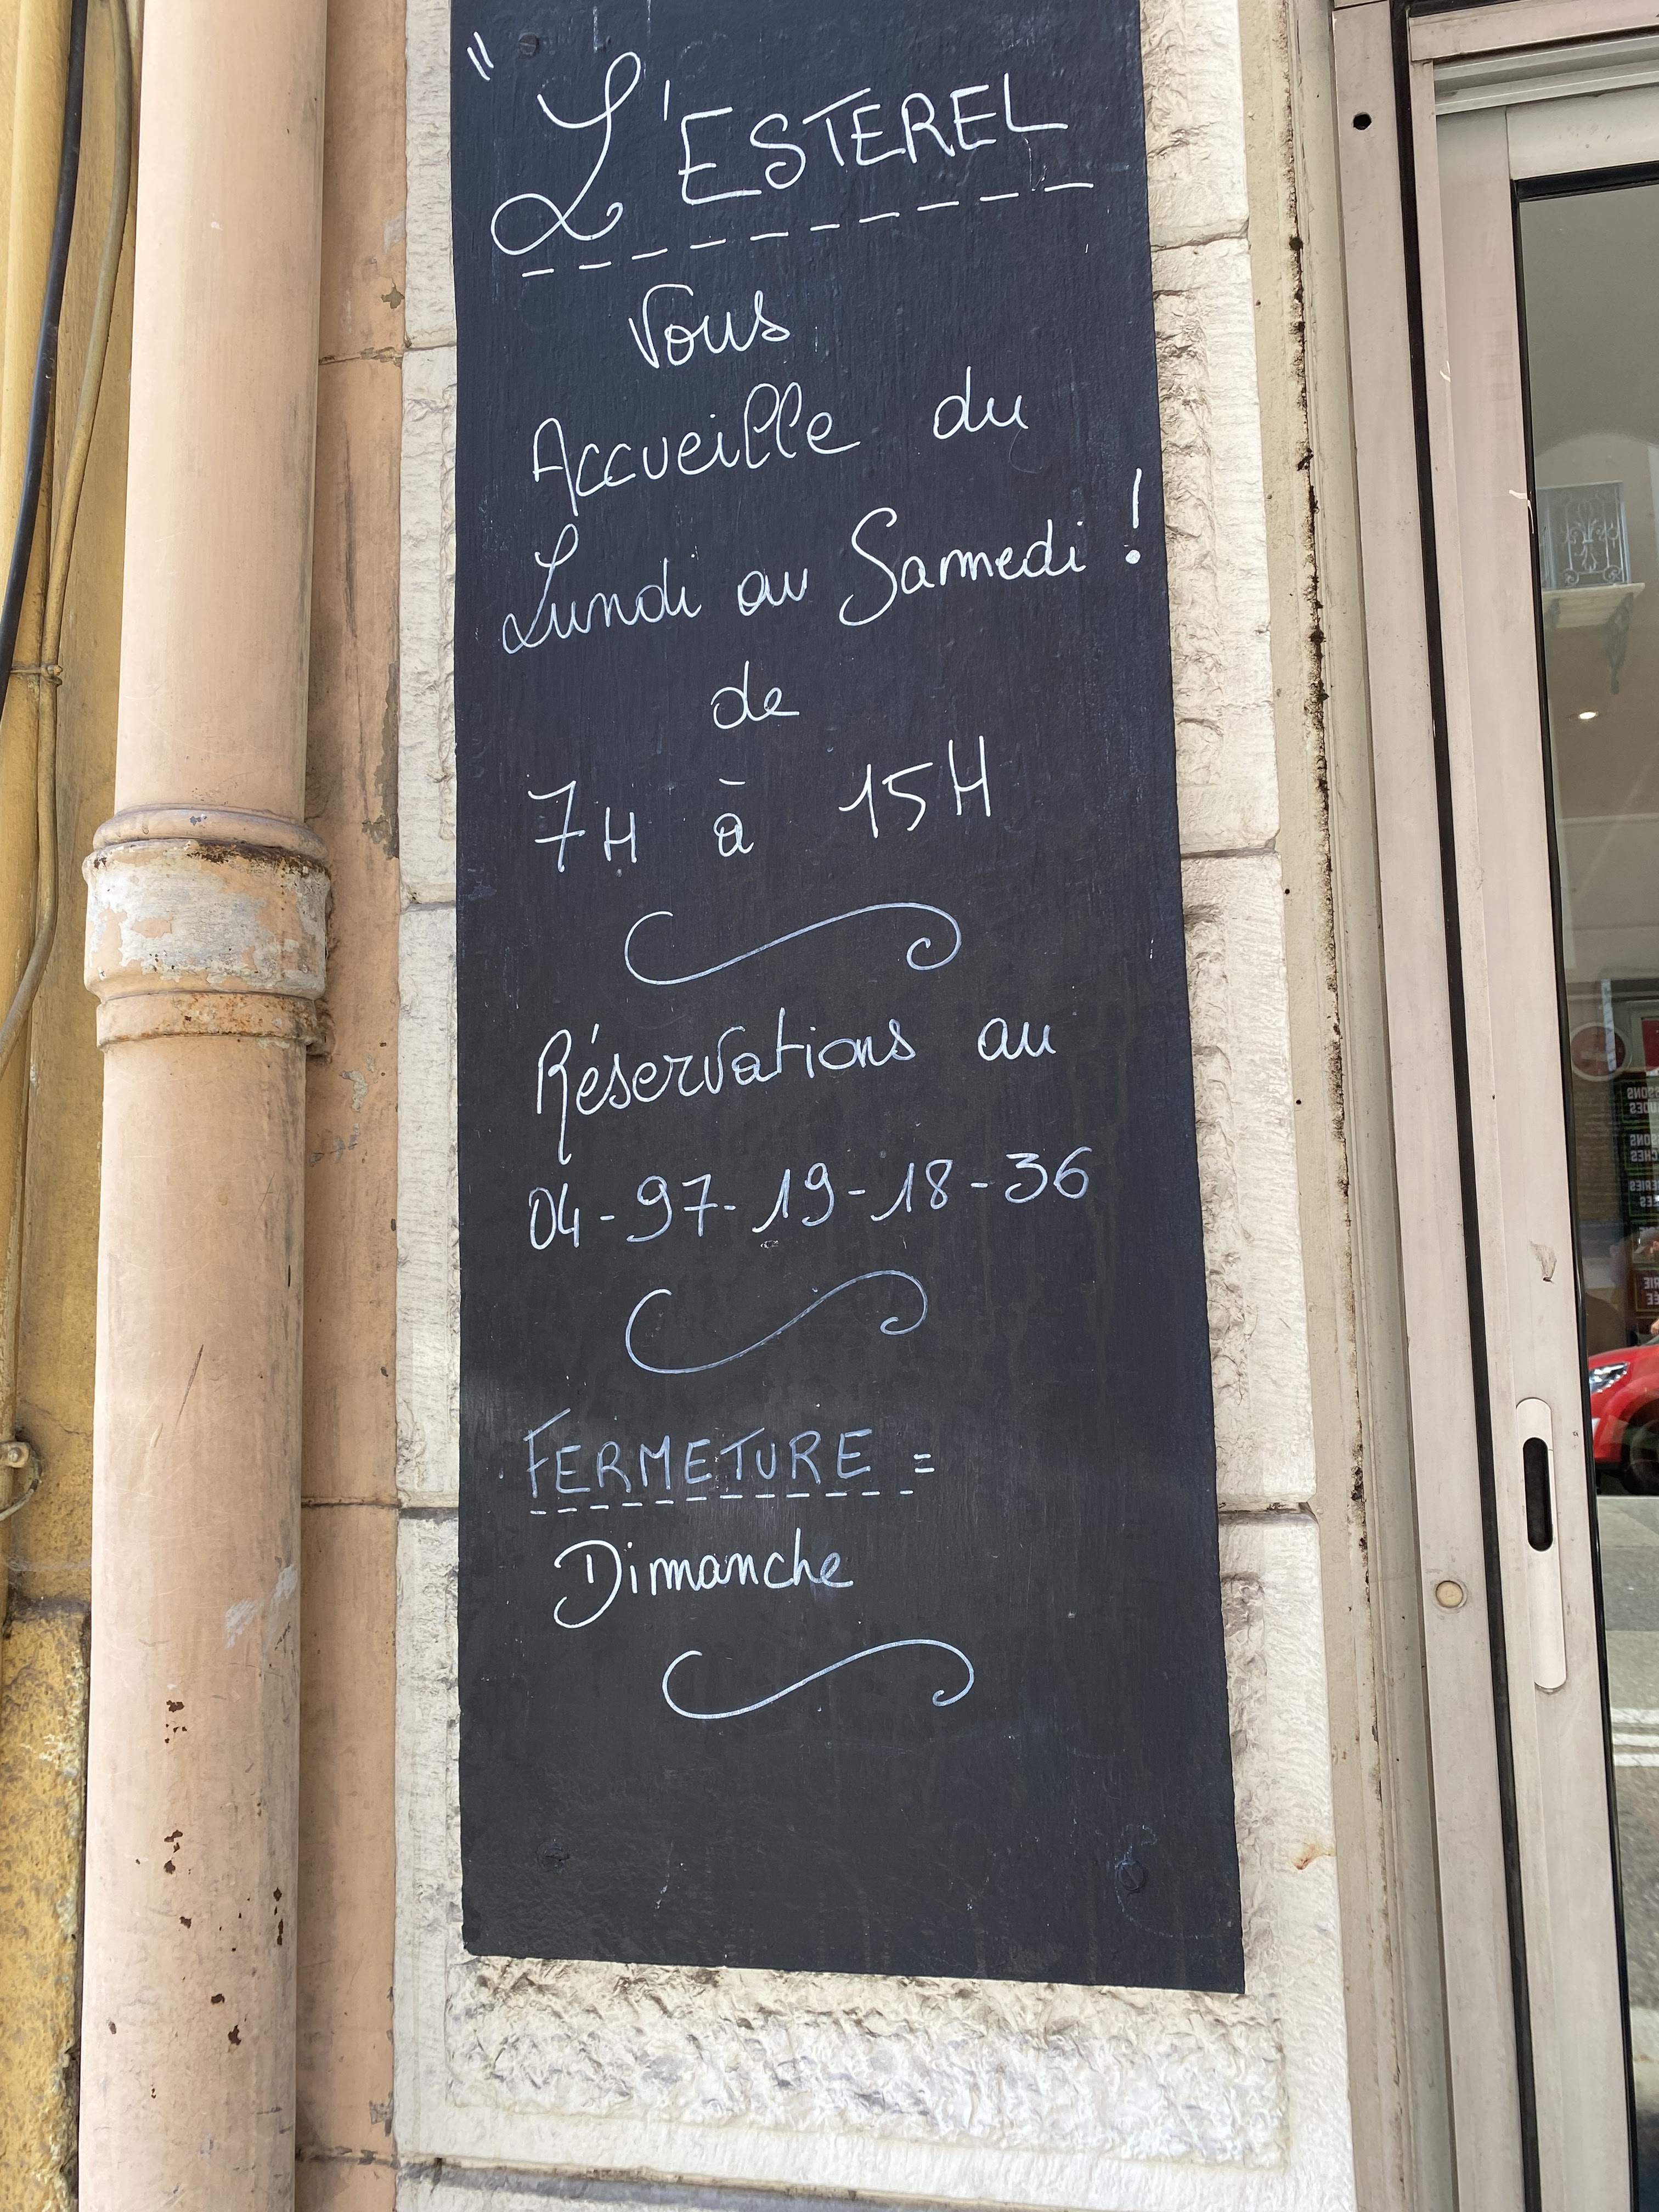 " L'ESTEREL
Vous
Accueille du
Lundi au Samedi !
de
7H à 15H
Réservations au
04-97-19-18-36
FERMETURE =
Dimanche